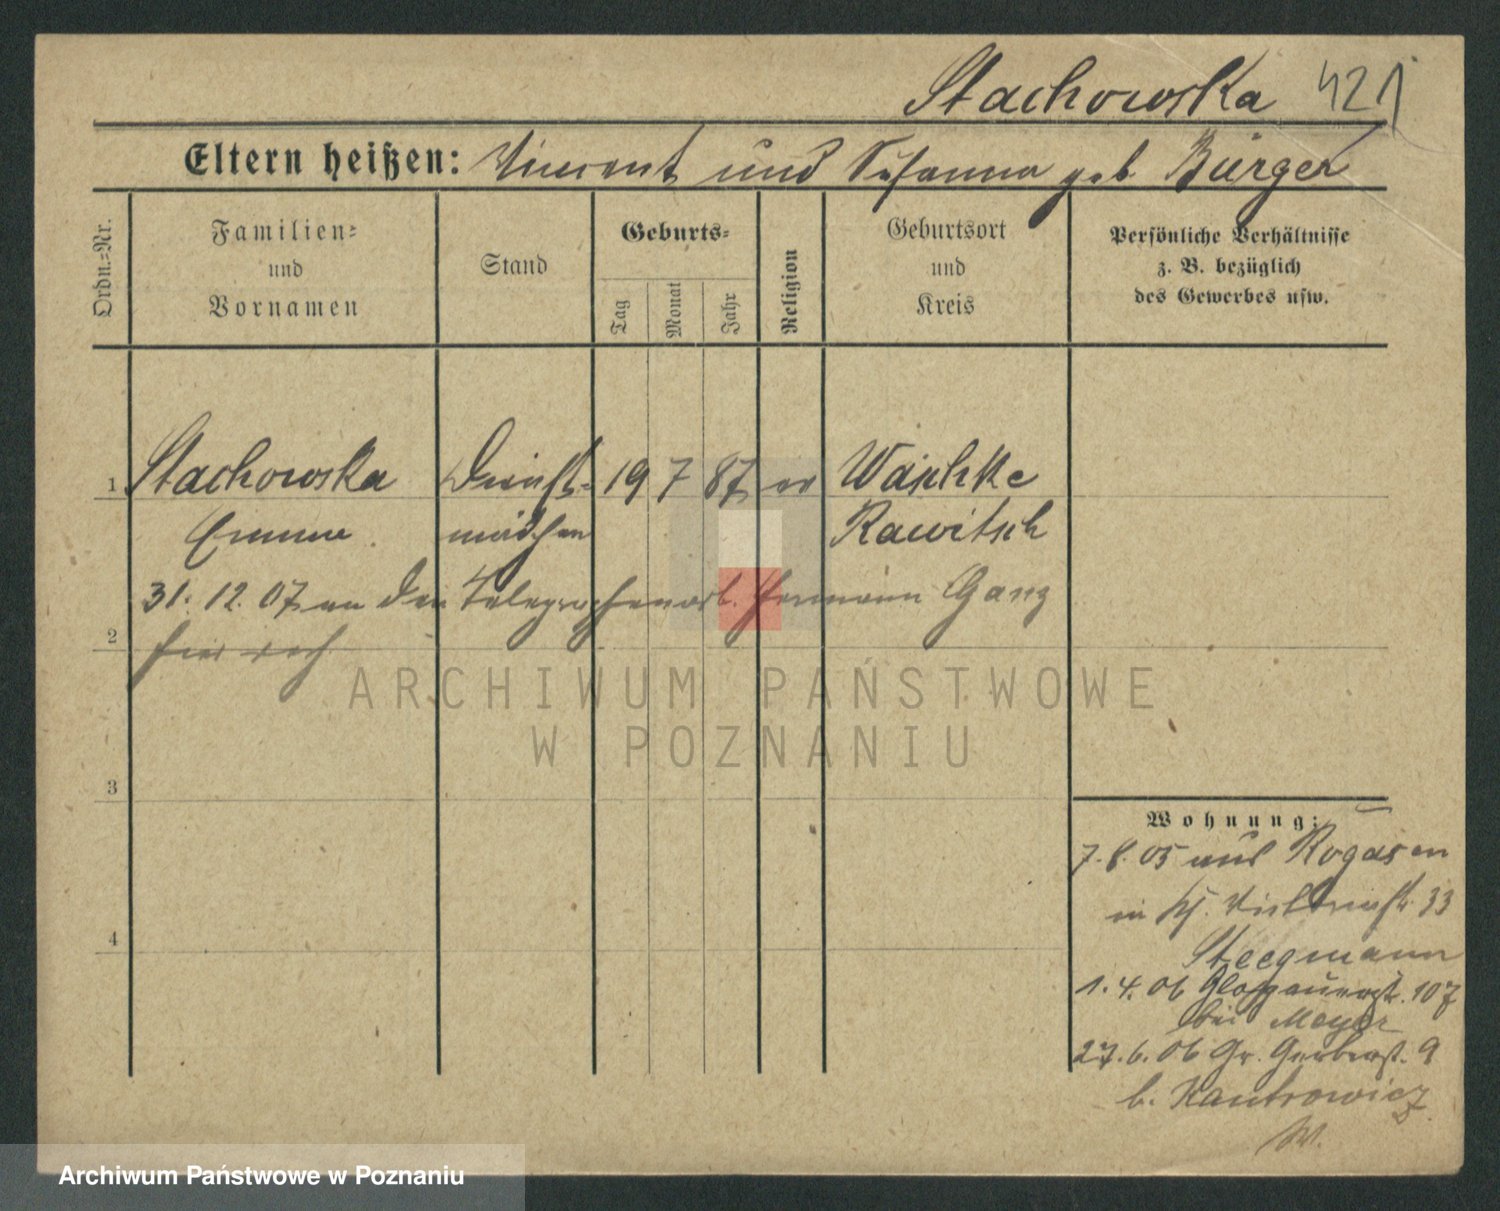 Stachowska 421
Eltern heißen: Vincent und Susanna geb Bürger
Ordn.-Nr.
Familien-
und
Vornamen
Stand
Geburts-
Tag
Monat
Jahr
Religion
Geburtsort
und
Kreis
Persönliche Verhältnisse
z. B. bezüglich
des Gewerbes usw.
1 Stachowska Dienst- 19 7 87 ev Waschke
Emma mädchen Rawitsch
31. 12. 07 an den Telegraphenarb. Hermann Ganz
2
3
4
Wohnung:
7. 8. 05 aus Rogasen
in 33
Steegmann
1. 4. 06 Glogauerstr. 107
bei Meyer
27. 6. 06 Gr. Gerberst. 9
b. Kantrowicz
W.
ARCHIWUM PAŃSTWOWE
W POZNANIU
Archiwum Państwowe w Poznaniu